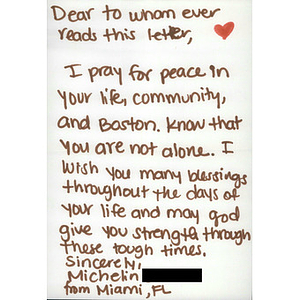 Dear to whom ever
reads this letter,
I pray for peace in
your life, community,
and Boston. Know that
you are not alone. I
wish you many blessings
throughout the days of
your life and may god
give you strength through
these tough times.
Sincerely,
Michelin
from Miami, FL